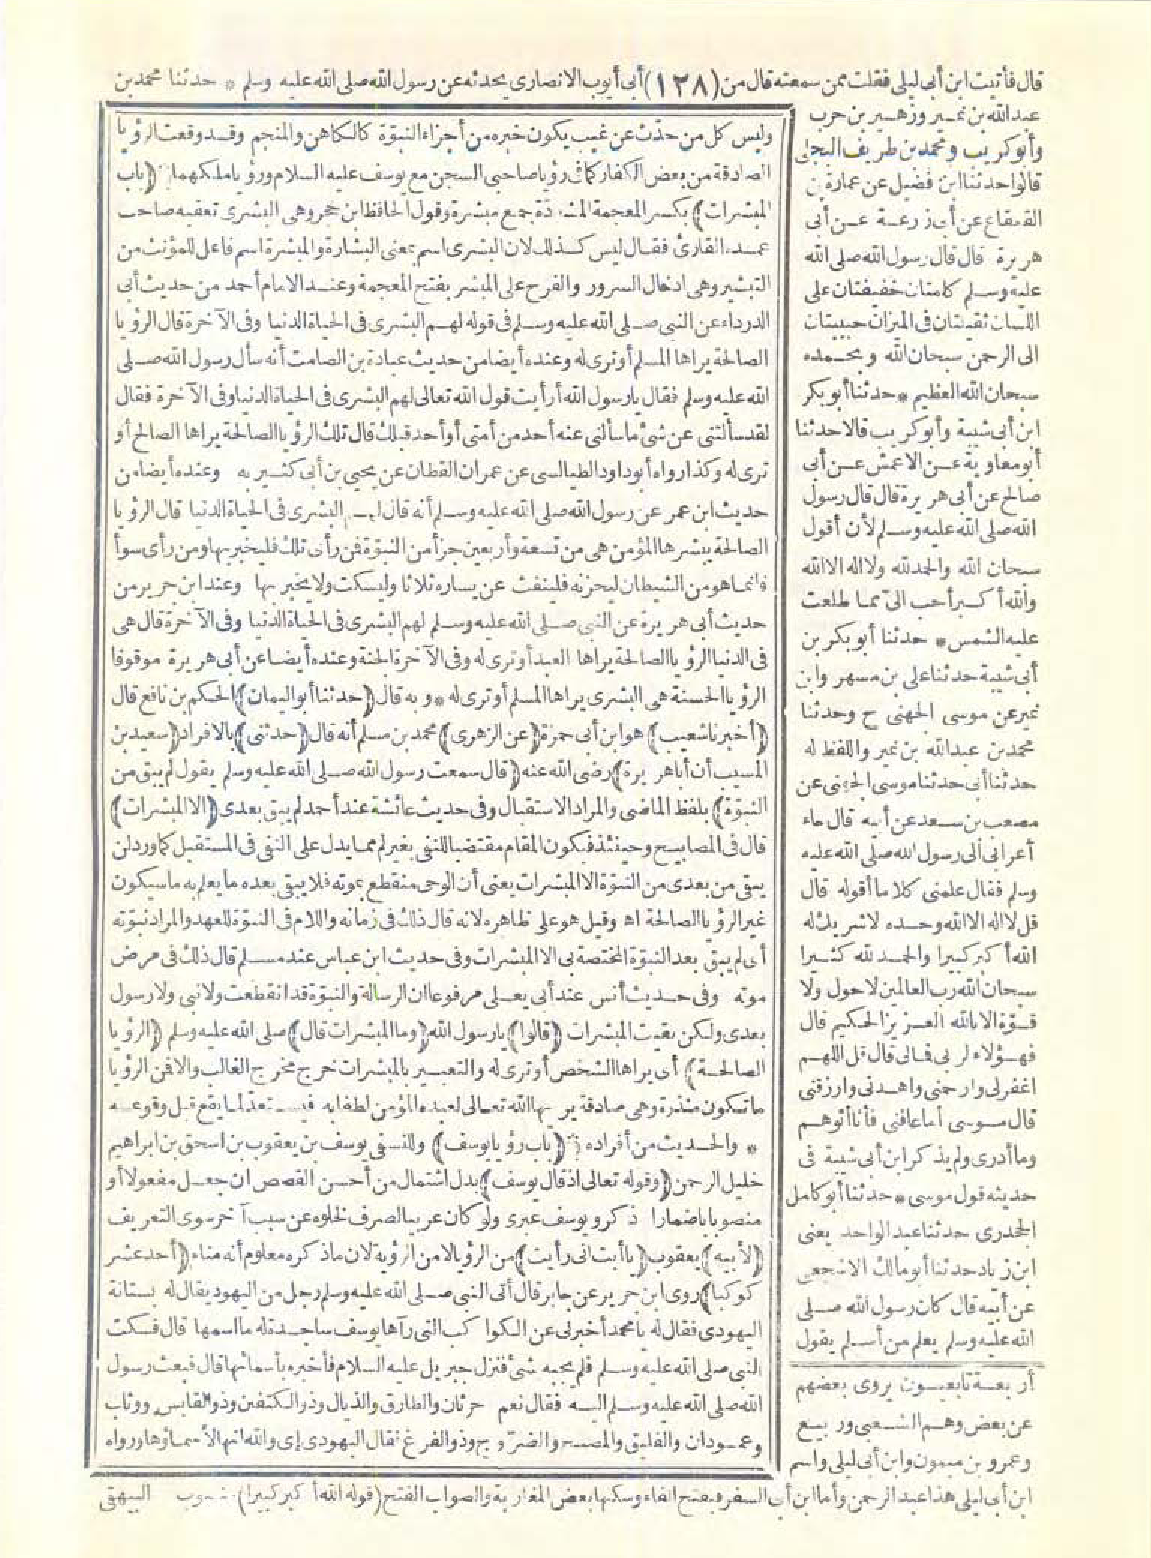 قال فأتيت ابن أبى ليلى فقلت ممن سمعته قال من (١٢٨) أبى أيوب الانصارى يحدثه عن رسول الله صلى الله عليه وسلم * حدثنا محمد بن
عبد الله بن نمير وزهير بن حرب
وأبو كريب ومحمد بن طريف البجلى
قالوا حدثنا ابن فضيل عن عمارة بن
القعقاع عن أبى زرعة عن أبى
هريرة قال قال رسول الله صلى الله
عليه وسلم كلمتان خفيفتان على
اللسان ثقيلتان فى الميزان حبيبتان
الى الرحمن سبحان الله وبحمده
سبحان الله العظيم * حدثنا أبو بكر
ابن أبى شيبة وأبو كريب قالا حدثنا
أبو معاوية عن الاعمش عن أبى
صالح عن أبى هريرة قال قال رسول
الله صلى الله عليه وسلم لأن أقول
سبحان الله والحمد لله ولا اله الا الله
والله أكبر أحب الىّ مما طلعت
عليه الشمس * حدثنا أبو بكر بن
أبى شيبة حدثنا على بن مسهر وابن
نمير عن موسى الجهنى ح وحدثنا
محمد بن عبد الله بن نمير واللفظ له
حدثنا أبى حدثنا موسى الجهنى عن
مصعب بن سعد عن أبيه قال جاء
أعرابى الى رسول الله صلى الله عليه
وسلم فقال علمنى كلاما أقوله قال
قل لا اله الا الله وحده لا شريك له
الله أكبر كبيرا والحمد لله كثيرا
سبحان الله رب العالمين لا حول ولا
قوّة الا بالله العزيز الحكيم قال
فهؤلاء لربى فمالى قال قل اللهم
اغفر لى وارحمنى واهدنى وارزقنى
قال موسى أما عافنى فأنا أتوهم
وما أدرى ولم يذكر ابن أبى شيبة فى
حديثه قول موسى * حدثنا أبو كامل
الجحدرى حدثنا عبد الواحد يعنى
ابن زياد حدثنا أبو مالك الاشجعى
عن أبيه قال كان رسول الله صلى
الله عليه وسلم يعلم من أسلم يقول
وليس كل من حدّث عن غيب يكون خبره من أجزاء النبوّة كالكاهن والمنجم وقد وقعت الرؤيا
الصادقة من بعض الكفار كما فى رؤيا صاحبى السجن مع يوسف عليه السلام ورؤيا ملكهما (باب
المبشرات) بكسر المعجمة المشددة جمع مبشرة وقول الحافظ ابن حجر وهى البشرى تعقبه صاحب
عمدة القارئ فقال ليس كذلك لان البشرى اسم بمعنى البشارة والمبشرة اسم فاعل للمؤنث من
التبشير وهى ادخال السرور والفرح على المبشر بفتح المعجمة وعند الامام أحمد من حديث أبى
الدرداء عن النبى صلى الله عليه وسلم فى قوله لهم البشرى فى الحياة الدنيا وفى الآخرة قال الرؤيا
الصالحة يراها المسلم أو ترى له وعنده أيضا من حديث عبادة بن الصامت أنه سأل رسول الله صلى
الله عليه وسلم فقال يا رسول الله أرأيت قول الله تعالى لهم البشرى فى الحياة الدنيا وفى الآخرة فقال
لقد سألتنى عن شئ ما سألنى عنه أحد من أمتى أو أحد قبلك قال تلك الرؤيا الصالحة يراها الصالح أو
ترى له وكذا رواه أبو داود الطيالسى عن عمران القطان عن يحيى بن أبى كثير به وعنده أيضا من
حديث ابن عمر عن رسول الله صلى الله عليه وسلم أنه قال لهم البشرى فى الحياة الدنيا قال الرؤيا
الصالحة يبشرها المؤمن هى من تسعة وأربعين جزأ من النبوّة فمن رأى تلك فليخبر بها ومن رأى سوأ
فانما هو من الشيطان ليحزنه فلينفث عن يساره ثلاثا وليسكت ولا يخبر بها وعند ابن جرير من
حديث أبى هريرة عن النبى صلى الله عليه وسلم لهم البشرى فى الحياة الدنيا وفى الآخرة قال هى
فى الدنيا الرؤيا الصالحة يراها العبد أو ترى له وفى الآخرة الجنة وعنده أيضا عن أبى هريرة موقوفا
الرؤيا الحسنة هى البشرى يراها المسلم أو ترى له * وبه قال (حدثنا أبو اليمان) الحكم بن نافع قال
(أخبرنا شعيب) هو ابن أبى حمزة (عن الزهرى) محمد بن مسلم أنه قال (حدثنى) بالافراد (سعيد بن
المسيب أن أبا هريرة) رضى الله عنه (قال سمعت رسول الله صلى الله عليه وسلم يقول لم يبق من
النبوّة) بلفظ الماضى والمراد الاستقبال وفى حديث عائشة عند أحمد لم يبق بعدى (الا المبشرات)
قال فى المصابيح وحينئذ فيكون المقام مقتضيا للنفى بغير لم مما يدل على النفى فى المستقبل كما ورد لن
يبقى من بعدى من النبوّة الا المبشرات يعنى أن الوحى منقطع بموته فلا يبقى بعده ما يعلم به ما سيكون
غير الرؤيا الصالحة اه وقيل هو على ظاهره لانه قال ذلك فى زمانه واللام فى النبوّة للعهد والمراد نبوّته
أى لم يبق بعد النبوّة المختصة بى الا المبشرات وفى حديث ابن عباس عند مسلم قال ذلك فى مرض
موته وفى حديث أنس عند أبى يعلى مرفوعا ان الرسالة والنبوّة قد انقطعت ولا نبى ولا رسول
بعدى ولكن بقيت المبشرات (قالوا) يا رسول الله (وما المبشرات قال) صلى الله عليه وسلم (الرؤيا
الصالحة) أى يراها الشخص أو ترى له والتعبير بالمبشرات خرج مخرج الغالب والا فمن الرؤيا
ما تكون منذرة وهى صادقة يريها الله تعالى لعبده المؤمن لطفا به فيستعد لما يقع قبل وقوعه
* والحديث من أفراده (باب رؤيا يوسف) وللنسفى يوسف بن يعقوب بن اسحق بن ابراهيم
خليل الرحمن (وقوله تعالى اذ قال يوسف) بدل اشتمال من أحسن القصص ان جعل مفعولا أو
منصوبا باضمار اذكر ويوسف عبرى ولو كان عربيا لصرف لخلوه عن سبب آخر سوى التعريف
(لأبيه) يعقوب (يا أبت انى رأيت) من الرؤيا لا من الرؤية لان ما ذكره معلوم أنه منام (أحد عشر
كوكبا) روى ابن جرير عن جابر قال أتى النبى صلى الله عليه وسلم رجل من اليهود يقال له بستانة
اليهودى فقال له يا محمد أخبرنى عن الكواكب التى رآها يوسف ساجدة له ما اسمها قال فسكت
النبى صلى الله عليه وسلم فلم يجبه بشئ فنزل جبريل عليه السلام فأخبره بأسمائها قال فبعث رسول
الله صلى الله عليه وسلم اليه فقال نعم جرثان والطارق والذيال وذو الكتفين وذو القابس ووثاب
وعمودان والفليق والمصبح والضروح وذو الفرغ فقال اليهودى إى والله انها لأسماؤها ورواه
أربعة تابعيون يروى بعضهم
عن بعض وهم الشعبى وربيع
وعمرو بن ميمون وابن أبى ليلى واسم
ابن أبى ليلى هذا عبد الرحمن وأما ابن أبى السفر فبفتح الفاء وسكنها بعض المغاربة والصواب الفتح (قوله الله أكبر كبيرا) البيهقى